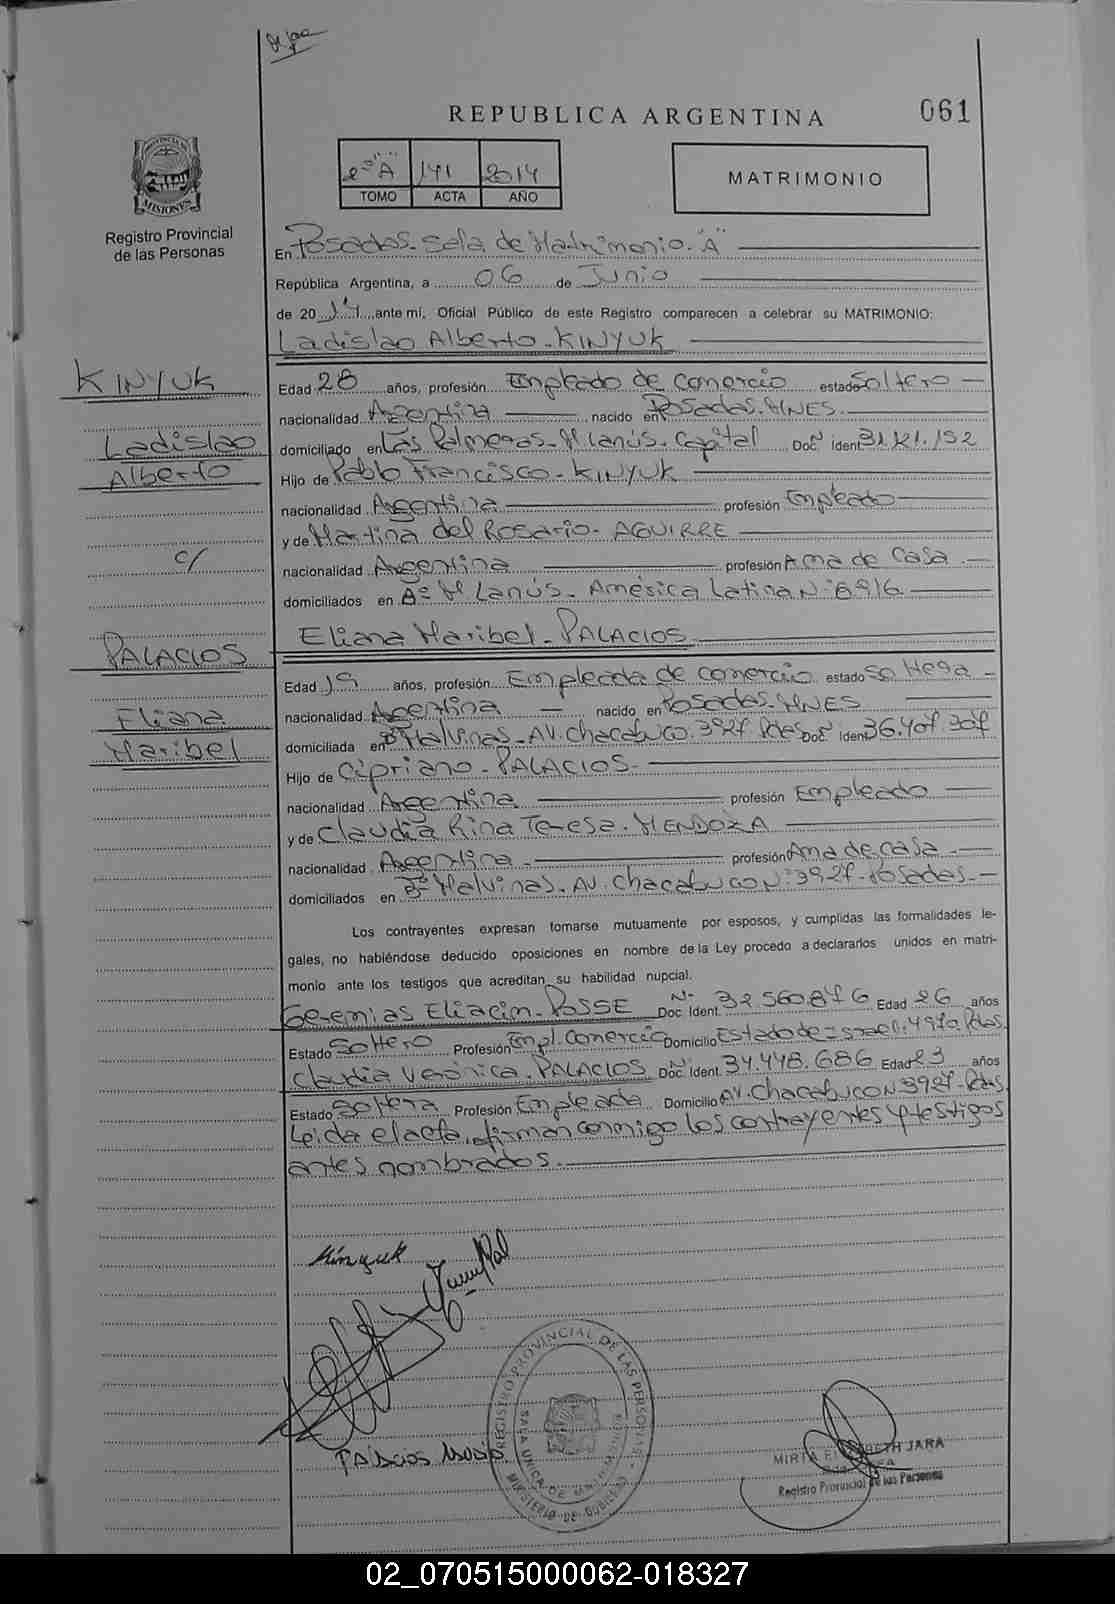 061
REPUBLICA ARGENTINA
2º "A" 141 2014
TOMO ACTA AÑO
MATRIMONIO
PROVINCIA DE
MISIONES
Registro Provincial
de las Personas
En Posadas. Sala de Matrimonio. "A"
República Argentina, a 06 de Junio
de 20 14, ante mí, Oficial Público de este Registro comparecen a celebrar su MATRIMONIO:
Ladislao Alberto - KINYUK
KINYUK
Ladislao
Alberto
c/
PALACIOS
Eliana
Maribel
Edad 28 años, profesión Empleado de comercio estado Soltero
nacionalidad Argentina, nacido en Posadas. MNES.
domiciliado en Las Palmeras - Vº Lanús - Capital Doc. Ident. 31.121.152
Hijo de Pablo Francisco - KINYUK
nacionalidad Argentina profesión Empleado
y de Martina del Rosario - AGUIRRE
nacionalidad Argentina profesión Ama de Casa
domiciliados en Bº Vº Lanús - América Latina Nº 6916
Eliana Maribel - PALACIOS
Edad 19 años, profesión Empleada de comercio estado Soltera
nacionalidad Argentina nacido en Posadas. MNES
domiciliada en Bº Malvinas - AV. Chacabuco. 3927. Pdas Doc. Ident. 36.407.307
Hijo de Cipriano - PALACIOS
nacionalidad Argentina profesión Empleado
y de Claudia Rina Teresa - MENDOZA
nacionalidad Argentina profesión Ama de casa
domiciliados en Bº Malvinas - AV. Chacabuco Nº 3927 - Posadas
Los contrayentes expresan tomarse mutuamente por esposos, y cumplidas las formalidades le-
gales, no habiéndose deducido oposiciones en nombre de la Ley procedo a declararlos unidos en matri-
monio ante los testigos que acreditan su habilidad nupcial.
Geremias Eliacin - POSSE Doc. Ident. Nº 32.560.876 Edad 26 años
Estado Soltero Profesión Empl. Comercio Domicilio Estado de Israel. 4970. Pdas
Claudia Verónica - PALACIOS Doc. Ident. 34.448.686 Edad 23 años
Estado Soltera Profesión Empleada Domicilio AV. Chacabuco N 3927 - Pdas
Leida el acta, firman conmigo los contrayentes y testigos
antes nombrados.
Kinyuk
PALacios
REGISTRO PROVINCIAL DE LAS PERSONAS
SALA UNICA DE MATRIMONIOS
MINISTERIO DE GOBIERNO
MIRTA ELIZABETH JARA
Registro Provincial de las Personas
02_070515000062-018327